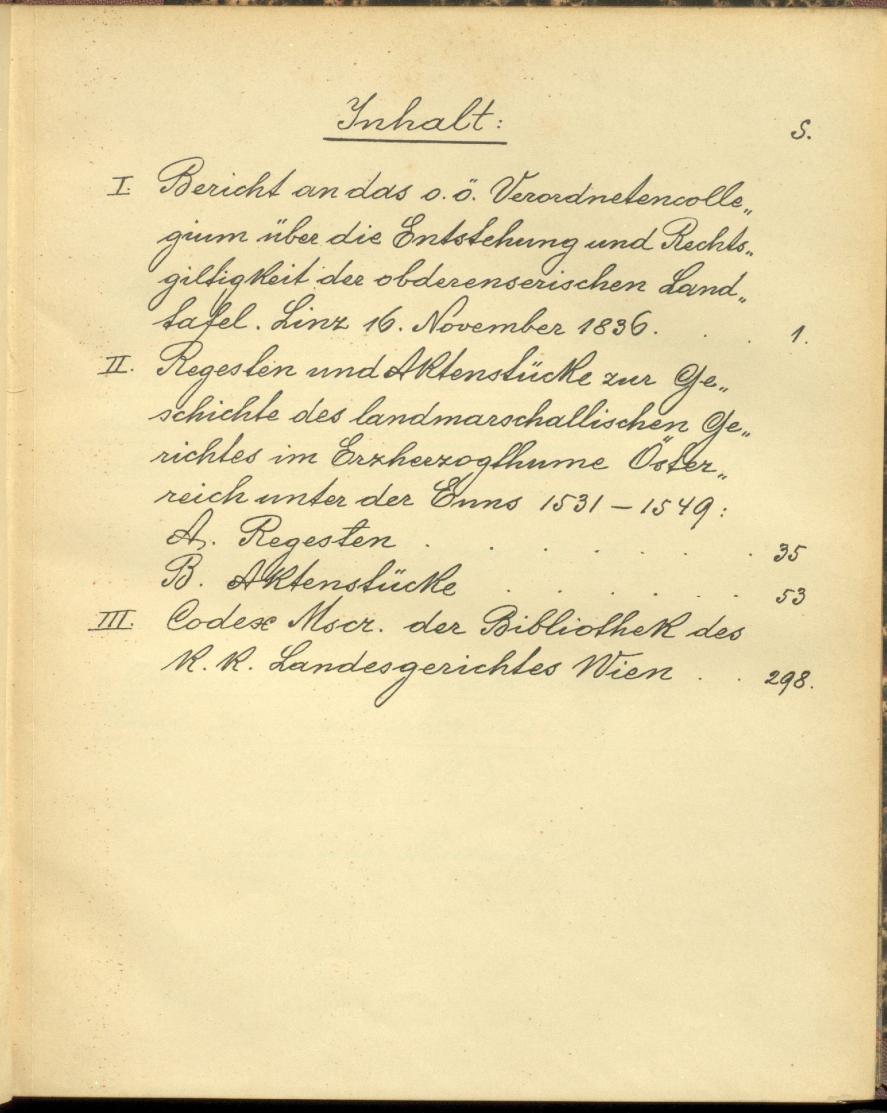 Inhalt: S.
I. Bericht an das o. ö. Verordnetencolle„
gium über die Entstehung und Rechts„
giltigkeit der obderenserischen Land„
tafel. Linz 16. November 1836. . . 1.
II. Regesten und Aktenstücke zur Ge„
schichte des landmarschallischen Ge„
richtes im Erzherzogthume Öster„
reich unter der Enns 1531 – 1549:
A. Regesten . . . . . . . . 35
B. Aktenstücke . . . . . . 53
III. Codex Mscr. der Bibliothek des
K. K. Landesgerichtes Wien . . 298.